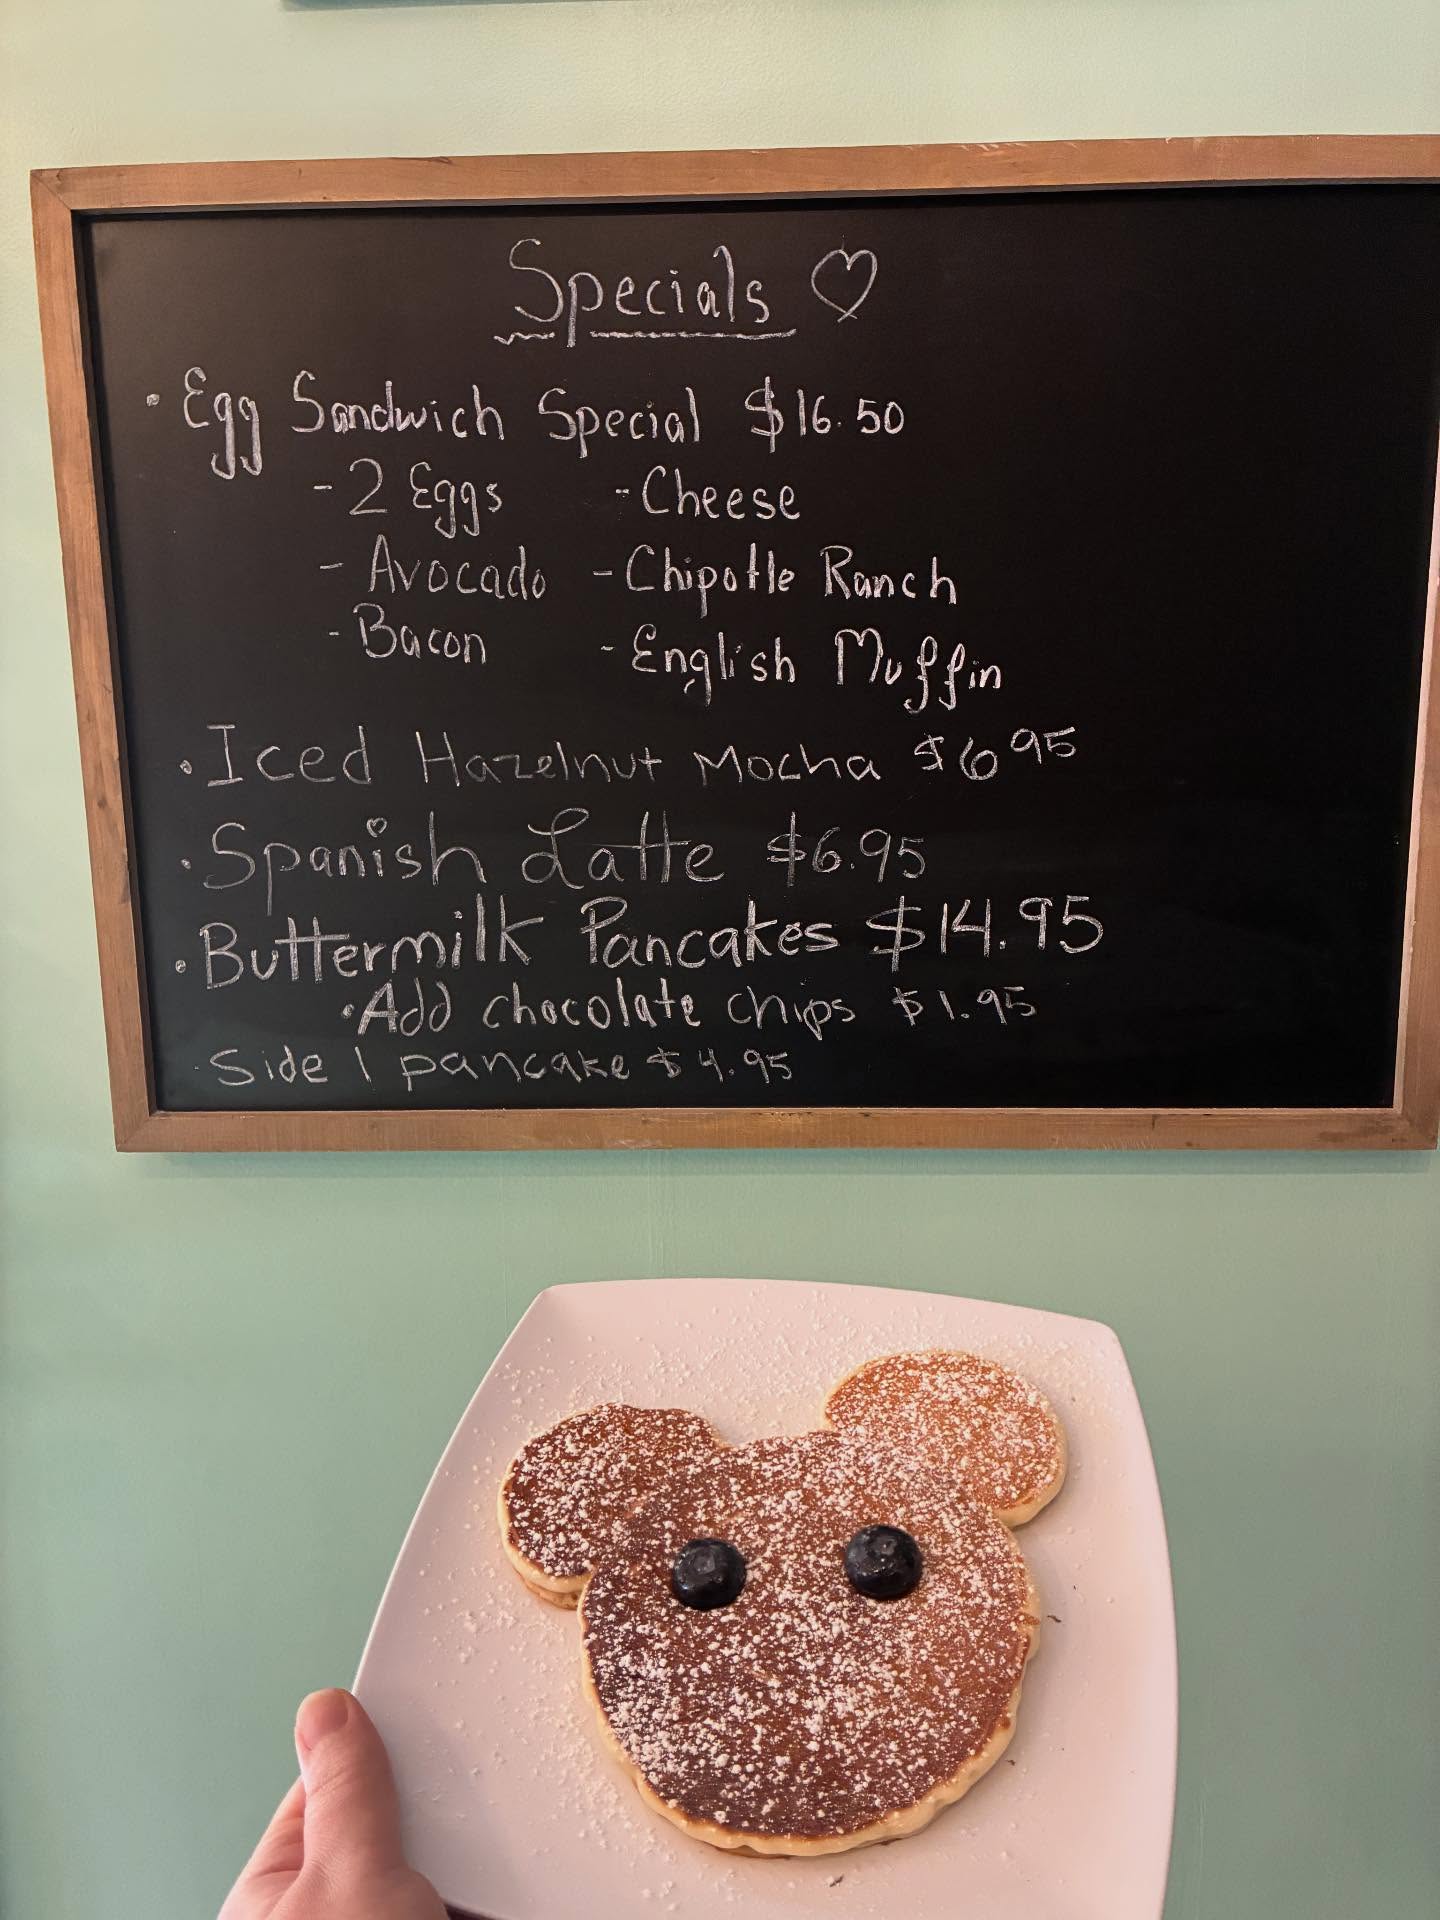 Specials ♡
· Egg Sandwich Special $16.50
- 2 Eggs - Cheese
- Avocado - Chipotle Ranch
- Bacon - English Muffin
· Iced Hazelnut Mocha $6 95
· Spanish Latte $6.95
· Buttermilk Pancakes $14.95
· Add chocolate chips $1.95
· Side 1 pancake $4.95